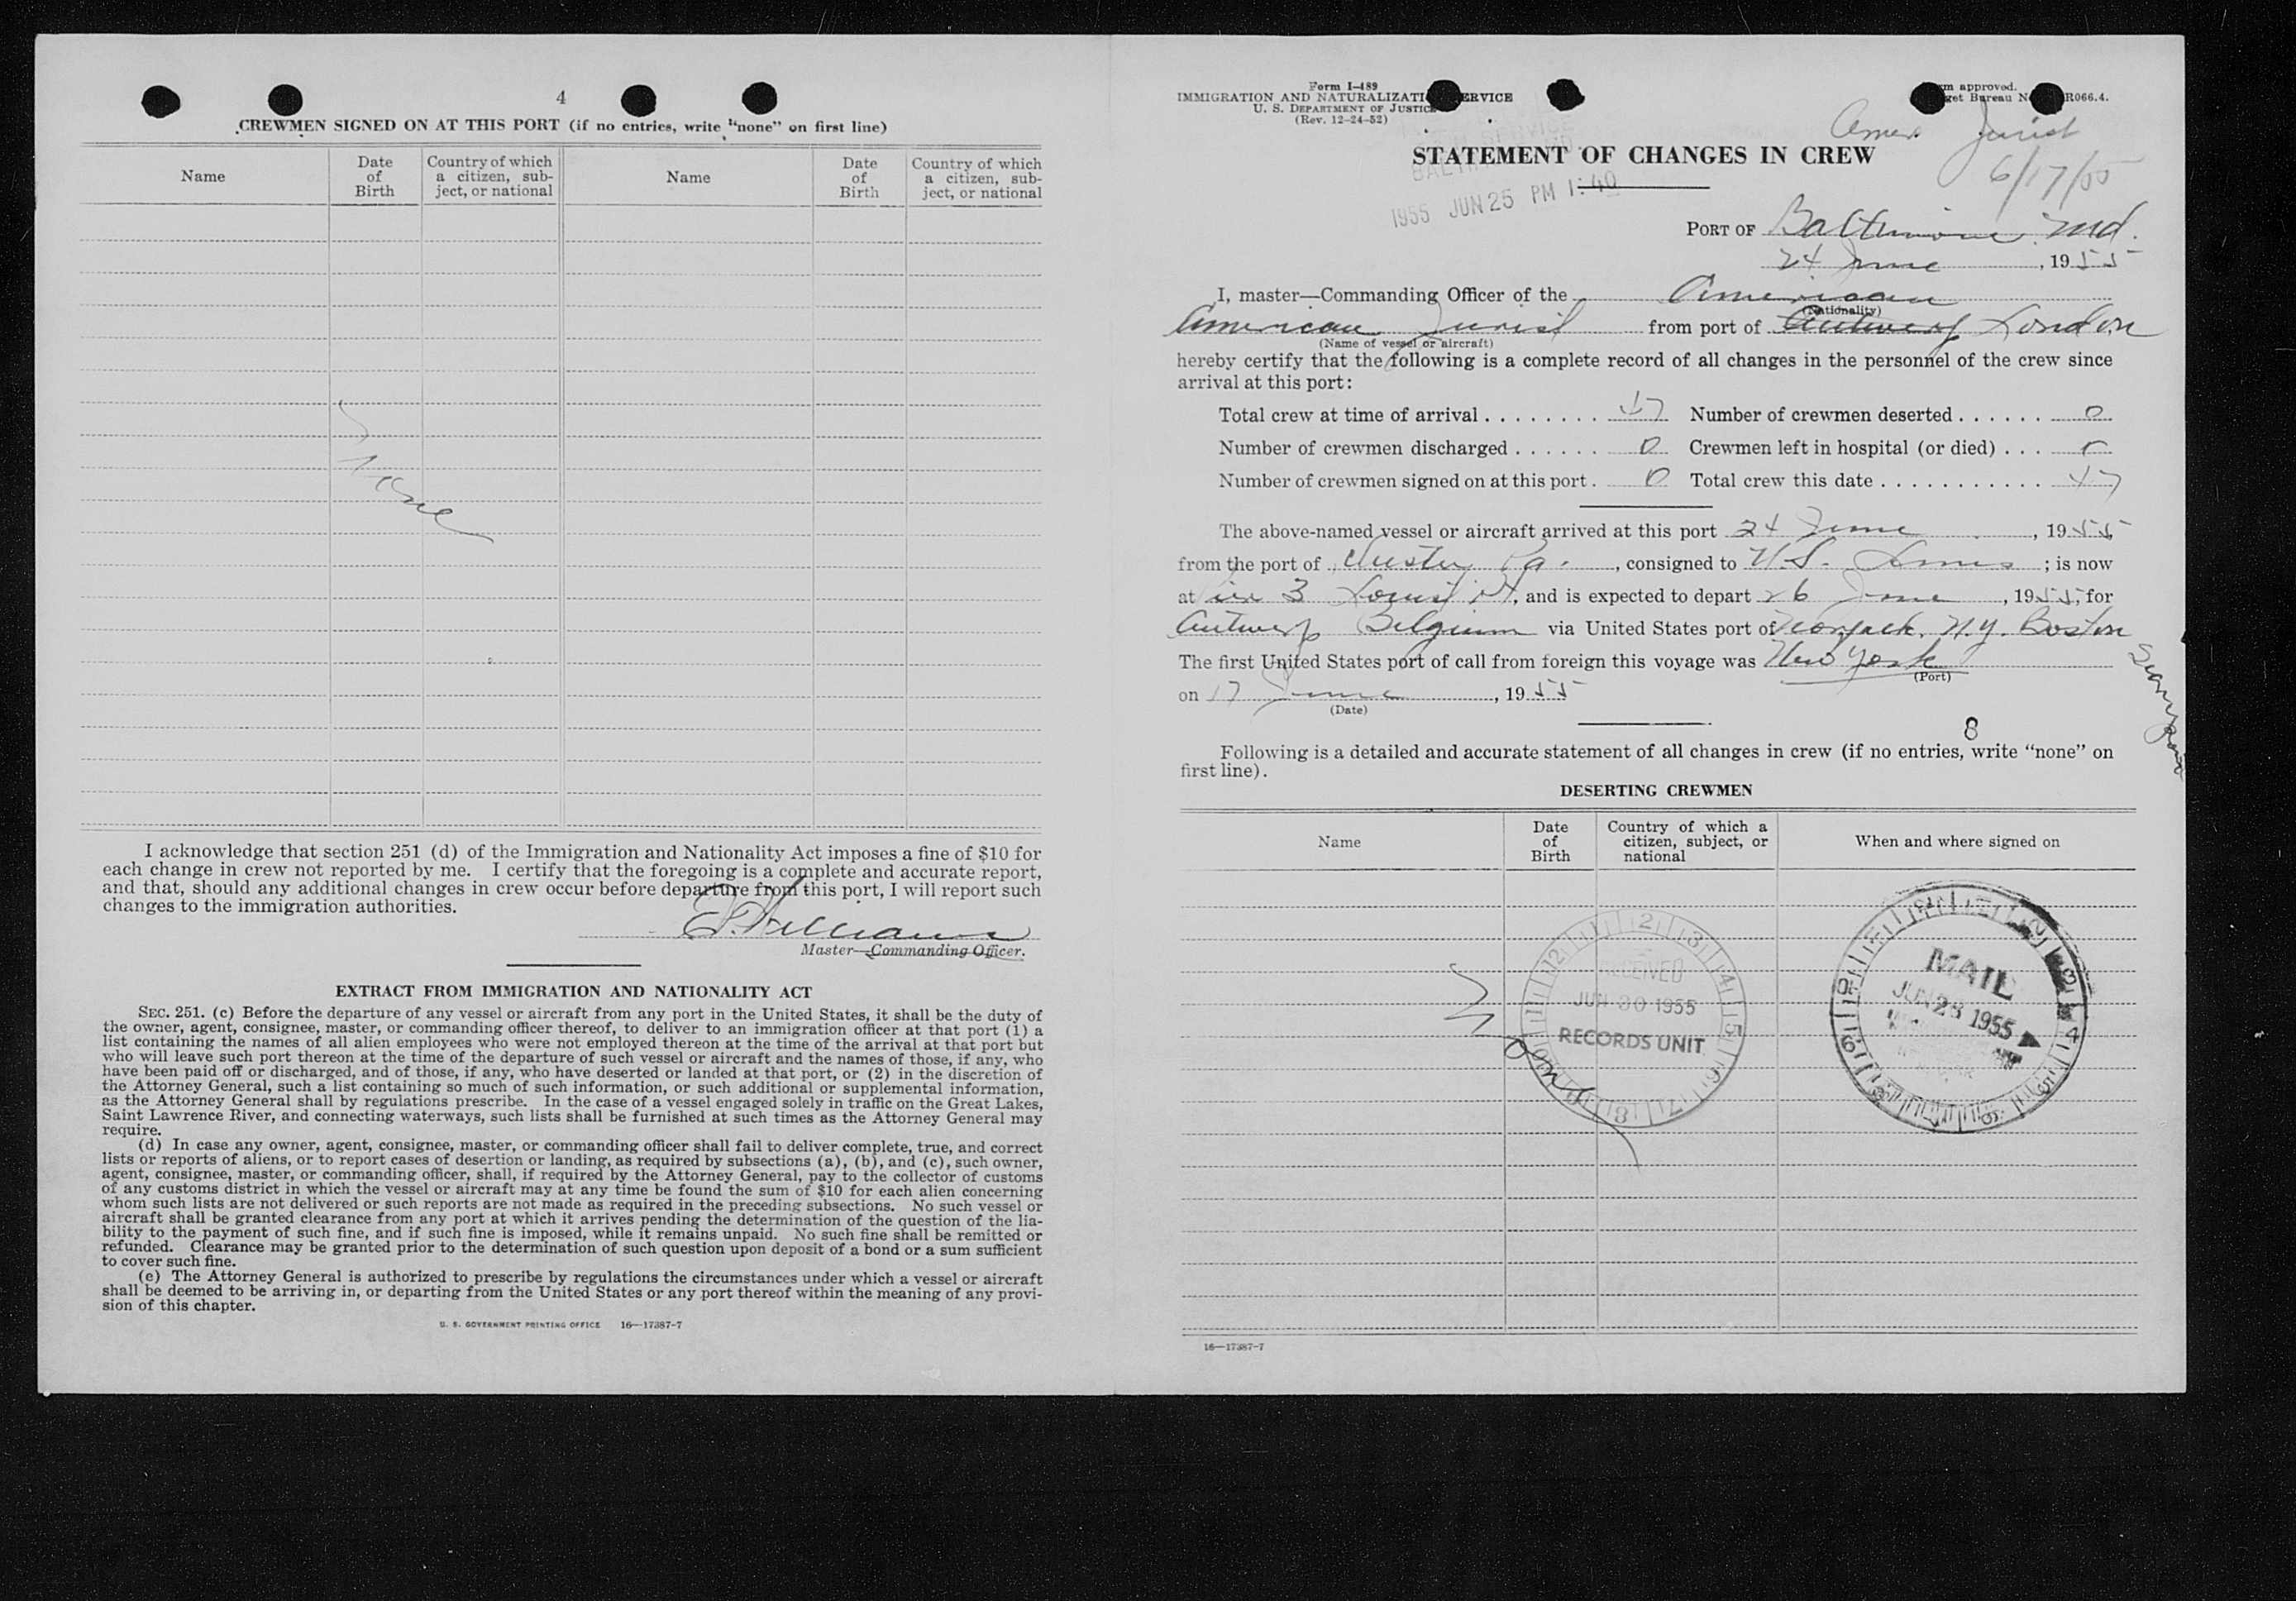 4
CREWMEN SIGNED ON AT THIS PORT (if no entries, write "none" on first line)
Name
Date of Birth
Country of which a citizen, subject, or national
Name
Date of Birth
Country of which a citizen, subject, or national
none
I acknowledge that section 251 (d) of the Immigration and Nationality Act imposes a fine of $10 for
each change in crew not reported by me. I certify that the foregoing is a complete and accurate report,
and that, should any additional changes in crew occur before departure from this port, I will report such
changes to the immigration authorities.
Master—Commanding Officer.
EXTRACT FROM IMMIGRATION AND NATIONALITY ACT
SEC. 251. (c) Before the departure of any vessel or aircraft from any port in the United States, it shall be the duty of
the owner, agent, consignee, master, or commanding officer thereof, to deliver to an immigration officer at that port (1) a
list containing the names of all alien employees who were not employed thereon at the time of the arrival at that port but
who will leave such port thereon at the time of the departure of such vessel or aircraft and the names of those, if any, who
have been paid off or discharged, and of those, if any, who have deserted or landed at that port, or (2) in the discretion of
the Attorney General, such a list containing so much of such information, or such additional or supplemental information,
as the Attorney General shall by regulations prescribe. In the case of a vessel engaged solely in traffic on the Great Lakes,
Saint Lawrence River, and connecting waterways, such lists shall be furnished at such times as the Attorney General may
require.
(d) In case any owner, agent, consignee, master, or commanding officer shall fail to deliver complete, true, and correct
lists or reports of aliens, or to report cases of desertion or landing, as required by subsections (a), (b), and (c), such owner,
agent, consignee, master, or commanding officer, shall, if required by the Attorney General, pay to the collector of customs
of any customs district in which the vessel or aircraft may at any time be found the sum of $10 for each alien concerning
whom such lists are not delivered or such reports are not made as required in the preceding subsections. No such vessel or
aircraft shall be granted clearance from any port at which it arrives pending the determination of the question of the lia-
bility to the payment of such fine, and if such fine is imposed, while it remains unpaid. No such fine shall be remitted or
refunded. Clearance may be granted prior to the determination of such question upon deposit of a bond or a sum sufficient
to cover such fine.
(e) The Attorney General is authorized to prescribe by regulations the circumstances under which a vessel or aircraft
shall be deemed to be arriving in, or departing from the United States or any port thereof within the meaning of any provi-
sion of this chapter.
U. S. GOVERNMENT PRINTING OFFICE 16—17387-7
Form I-489
IMMIGRATION AND NATURALIZATI ERVICE
U. S. DEPARTMENT OF JUSTICE
(Rev. 12-24-52)
m approved.
get Bureau N R066.4.
Amer Jurist
6/17/55
STATEMENT OF CHANGES IN CREW
1955 JUN 25 PM 1:40
PORT OF Baltimore Md.
24 June, 1955
I, master—Commanding Officer of the American
(Nationality)
American Jurist from port of Antwerp London
(Name of vessel or aircraft)
hereby certify that the following is a complete record of all changes in the personnel of the crew since
arrival at this port:
Total crew at time of arrival 47 Number of crewmen deserted 0
Number of crewmen discharged 0 Crewmen left in hospital (or died) 0
Number of crewmen signed on at this port 0 Total crew this date 47
The above-named vessel or aircraft arrived at this port 24 June, 1955
from the port of Chester Pa., consigned to U.S. Lines; is now
at Pier 3 , and is expected to depart 26 June, 1955, for
Antwerp Belgium via United States port of N.Y. Boston
The first United States port of call from foreign this voyage was New York
(Port)
on 17 June, 1955
(Date)
8
Following is a detailed and accurate statement of all changes in crew (if no entries, write "none" on
first line).
DESERTING CREWMEN
Name
Date of Birth
Country of which a citizen, subject, or national
When and where signed on
none
RECEIVED
JUN 30 1955
RECORDS UNIT
MAIL
JUN 28 1955
16—17387-7